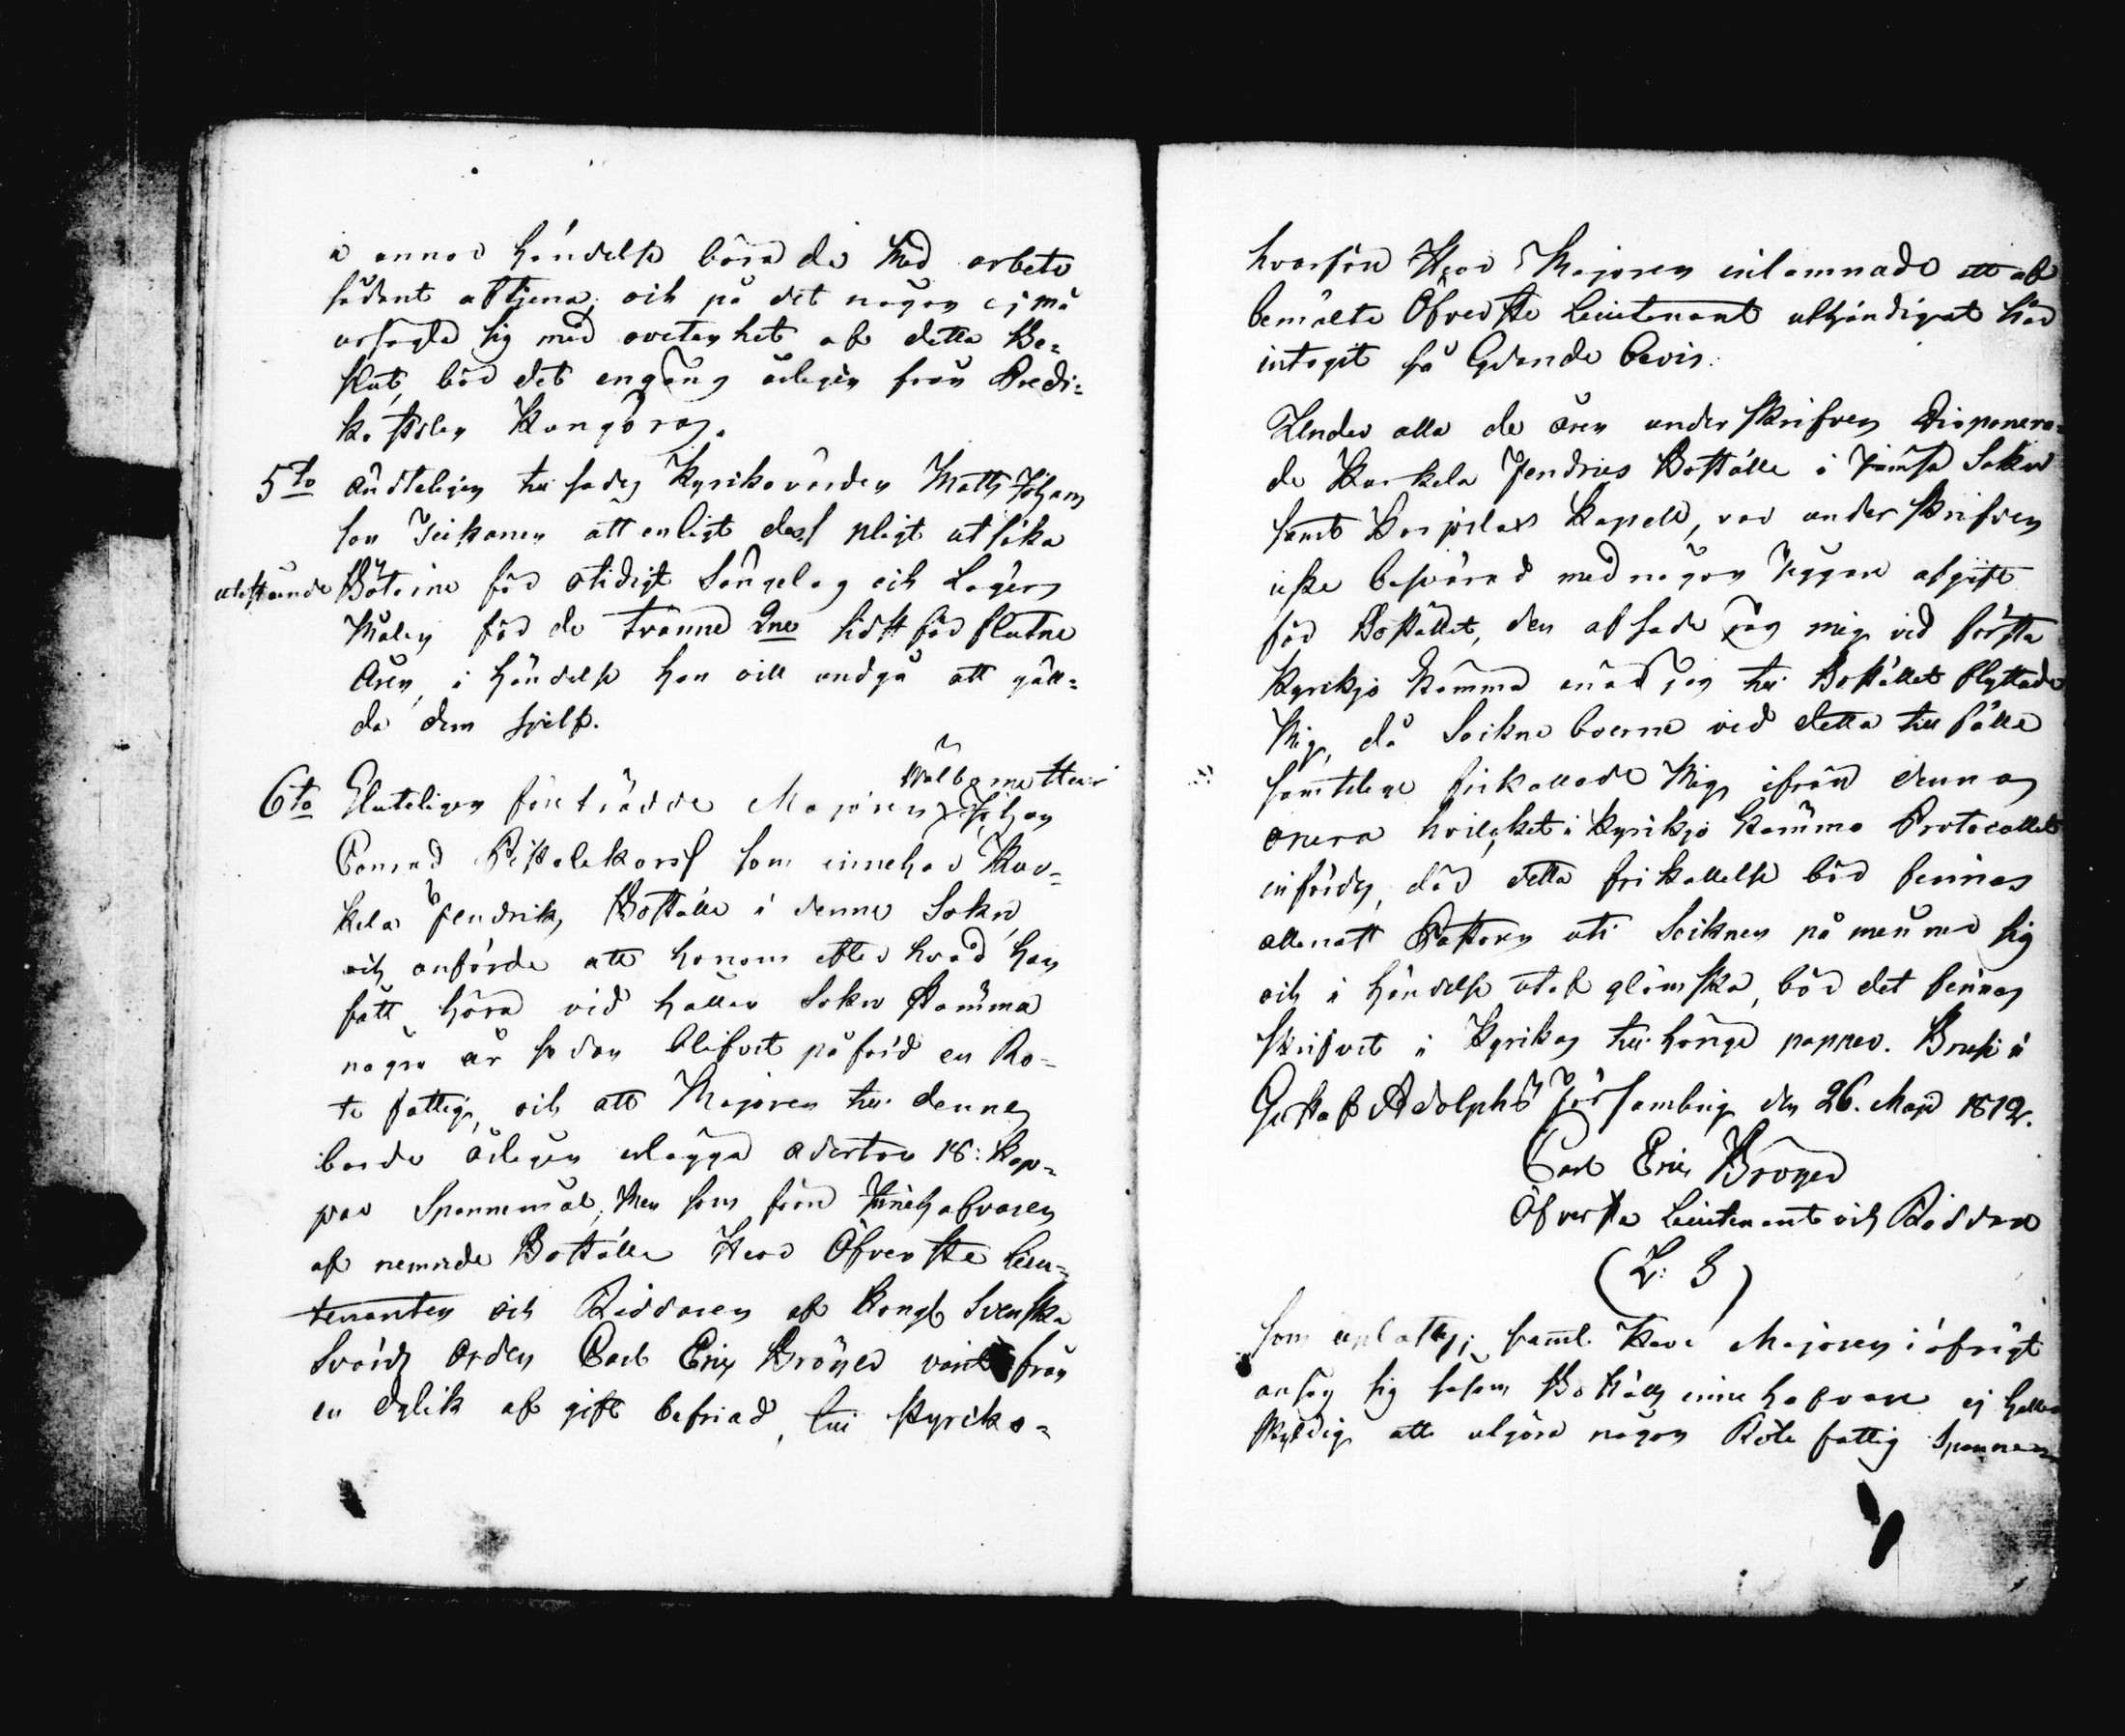 i annor händelse böra de med arbete
sådant aftjena, och på det någon ej må
ursägta sig med ovetenhet af detta Be-
slut, bör det engång årligen från Predi-
kostolen kungöras.
5to Ändteligen tillsades Kyrkovärden Matts Johans
son att enligt dess pligt utsöka
utestående Böterne för otidigt Sängelag och Lägers
Målen för de tvänne 2ne sidst förflutne
Åren, i händelse han vill undgå att gäll-
da dem sjelf.
Wälb
6to Sluteligen företrädde Majoren Johan
Conrad som innehar Kar-
kela Jendrik Boställe i denne Sokn
och anförde att honom efter hvad han
fått höra vid hållen Sokne Stämma
några år sedan blifvit påförd en Ro-
te fattig, och att Majoren till denne
borde årligen erlägga aderton 18: Kap-
par Spannemål; Men som förre Innehafvaren
af nemnde Boställe Herr Öfverste Lieu-
tenanten och Riddaren af Kongl Svenska
Svärds Orden Carl Eric Bröijer varit från
en dylik afgift befriad, till styrkо-
hvarföre Herr Majoren inlemnade ett af
bemälte Öfverste Lieutenant utgifvit här
intagit så lydande bevis:
Under alla de åren underskrifven Disponera-
de Karkela Jendries Boställe i Jämsä Sokn
samt Korpilax Kapell, var underskrifven
icke besvärad med någon afgift
för Bostället, den afsade jag mig vid första
Kyrkjo Stämma enär jag till Bostället flyttade
Mig, då Sockne boerne vid detta tillfälle
samtelige frikallade Mig ifrån denna
onera hvilket i Kyrkjo Stämmo Protocollet
infördes, där detta frikallelse bör finnas
allenast Pastorn uti Socknen påminner sig
och i händelse utaf glömska, bör det finnas
skrifvit i Kyrkans tillhörige papper. Bruse i
Gustaf Adolphs Församling den 26. Maji 1812.
Carl Eric Bröijer
Öfverste Lieutenant och Riddare
(L: S)
som uplästes; samt Herr Majoren i öfrigt
ansåg sig såsom Boställs innehafvare ej heller
skyldig att utgöra någon Rote fattig Spannem-